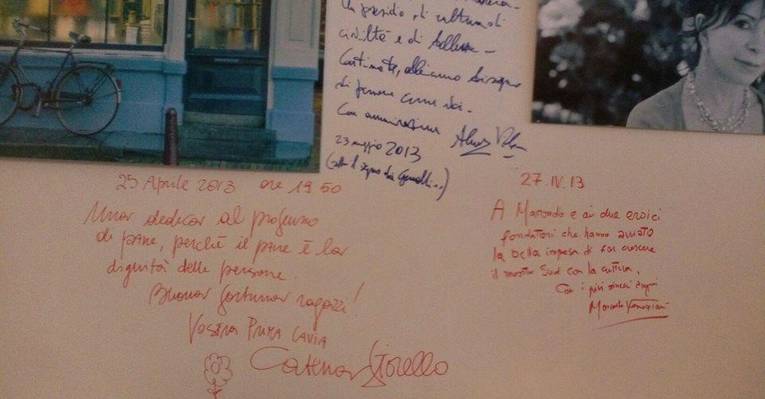 Un presidio di cultura, di
civiltà e di bellezza -
Continuate, abbiamo bisogno
di persone come voi.
Con ammirazione
23 maggio 2013
25 Aprile 2013 ore 19 50
Una dedica al profumo
di pane, perché il pane è la
dignità delle persone.
Buona fortuna ragazzi!
Vostra Prima Cavia
Catena Fiorello
27.IV.13
A Macondo e ai due eroici
fondatori che hanno avviato
la bella impresa di far crescere
il nostro Sud con la cultura,
Con i più sinceri auguri
Marcello Veneziani